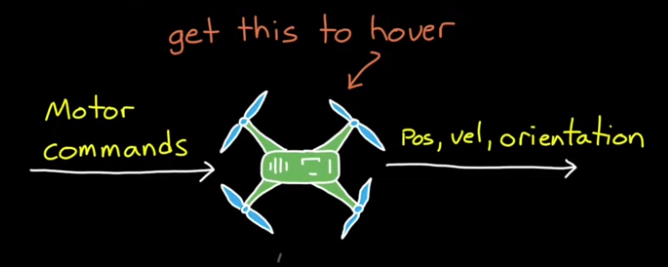 get this to hover
Motor
commands
Pos, vel, orientation